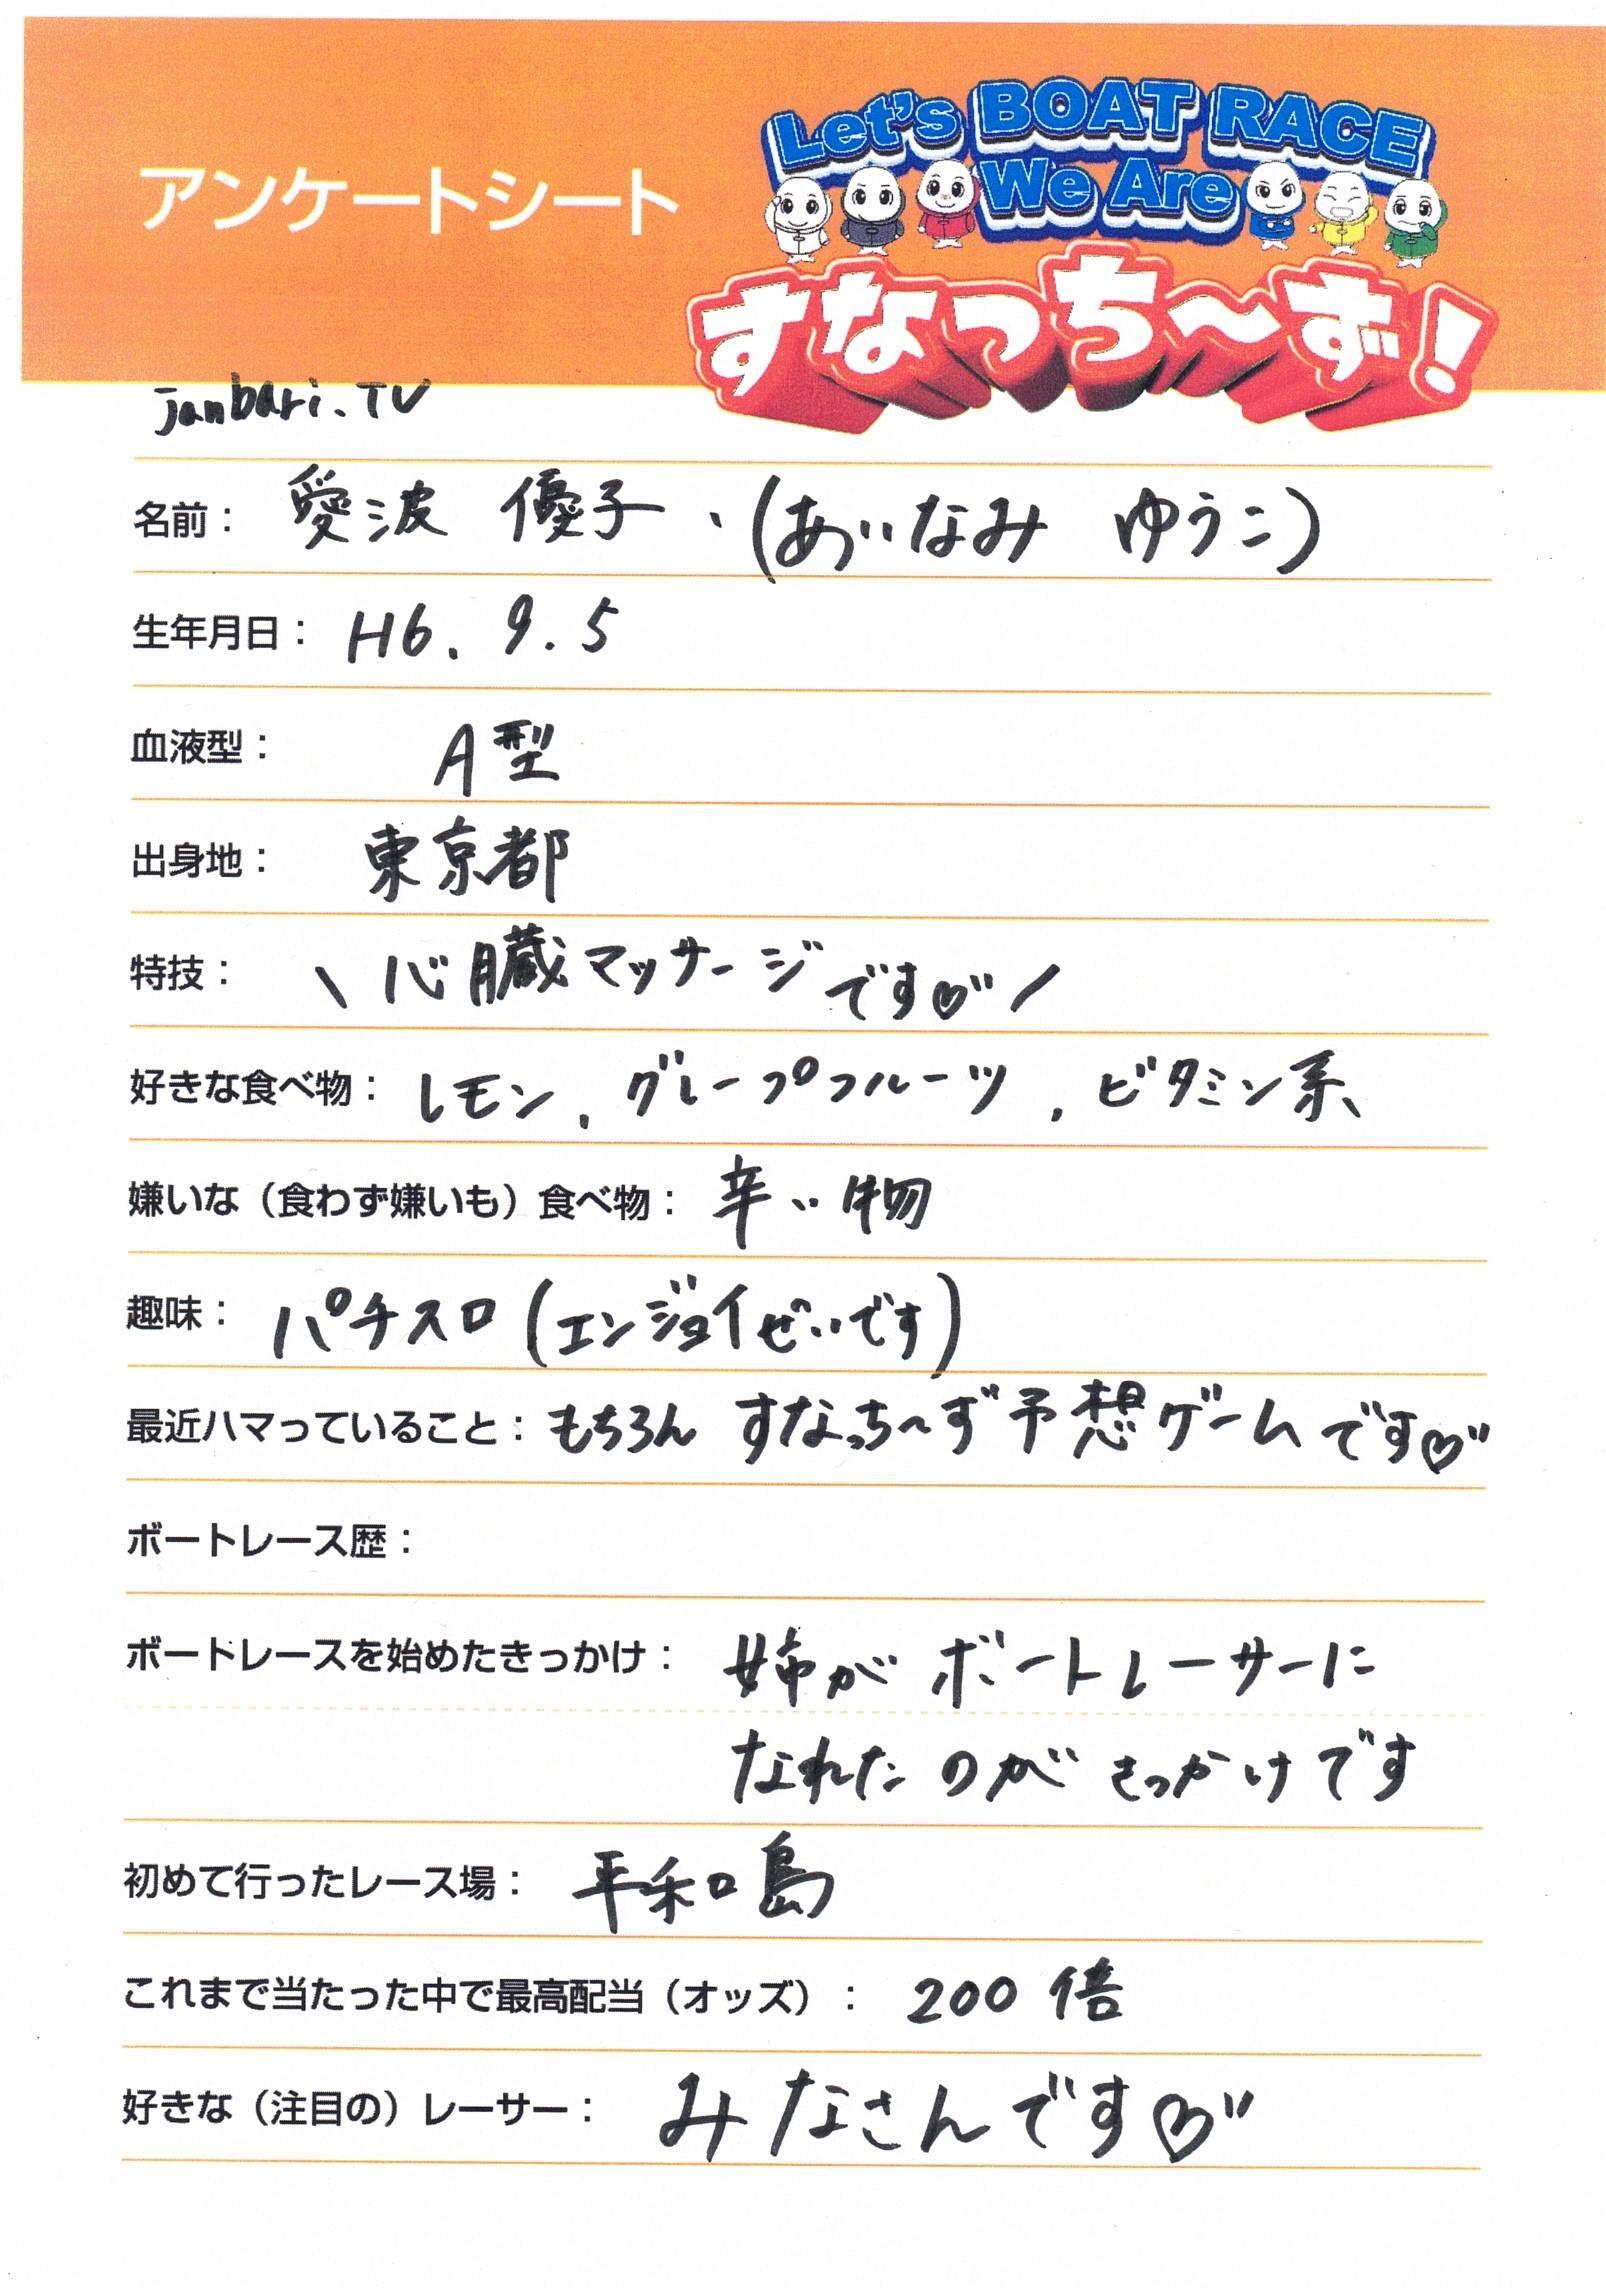 アンケートシート
Let's BOAT RACE
We Are
すなっち〜ず!
janbari.TV
名前： 愛波 優子、(あいなみ ゆうこ)
生年月日： H6. 9. 5
血液型： A型
出身地： 東京都
特技： \ 心臓マッサージです♡" /
好きな食べ物： レモン, グレープフルーツ, ビタミン系、
嫌いな（食わず嫌いも）食べ物： 辛い物
趣味： パチスロ(エンジョイぜいです)
最近ハマっていること： もちろん すなっち〜ず予想ゲームです♡"
ボートレース歴：
ボートレースを始めたきっかけ： 姉がボートレーサーに
なれたのがきっかけです
初めて行ったレース場： 平和島
これまで当たった中で最高配当（オッズ）： 200倍
好きな（注目の）レーサー： みなさんです♡"